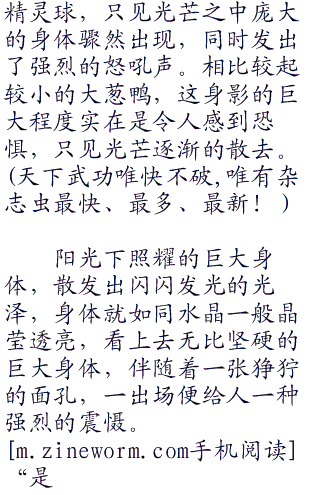 精灵球，只见光芒之中庞大
的身体骤然出现，同时发出
了强烈的怒吼声。相比较起
较小的大葱鸭，这身影的巨
大程度实在是令人感到恐
惧，只见光芒逐渐的散去。
(天下武功唯快不破,唯有杂
志虫最快、最多、最新！)
阳光下照耀的巨大身
体，散发出闪闪发光的光
泽，身体就如同水晶一般晶
莹透亮，看上去无比坚硬的
巨大身体，伴随着一张狰狞
的面孔，一出场便给人一种
强烈的震慑。
[m.zineworm.com手机阅读]
“是